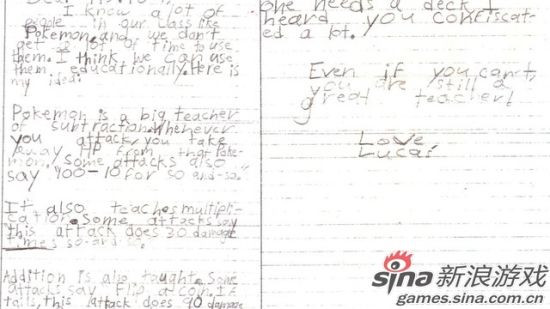 I know a lot of
people in our class like
Pokemon, and we don't
get a lot of time to use
them. I think we can use
them educationally. Here is
my idea:
Pokemon is a big teacher
of subtraction. Whenever
you attack, you take
away HP from that Poke-
mon. Some attacks also
say "100-10 for so and-so."
It also teaches multipli-
cation. Some attacks say
this attack does 30 damage
times so-and-so.
Addition is also taught. Some
attacks say Flip a coin. If
tails, this attack does 90 damage
one needs a deck I
heard you confiscat-
ed a lot.
Even if you can't,
you are still a
great teacher!
Love
Lucas
sina新浪游戏
games.sina.com.cn